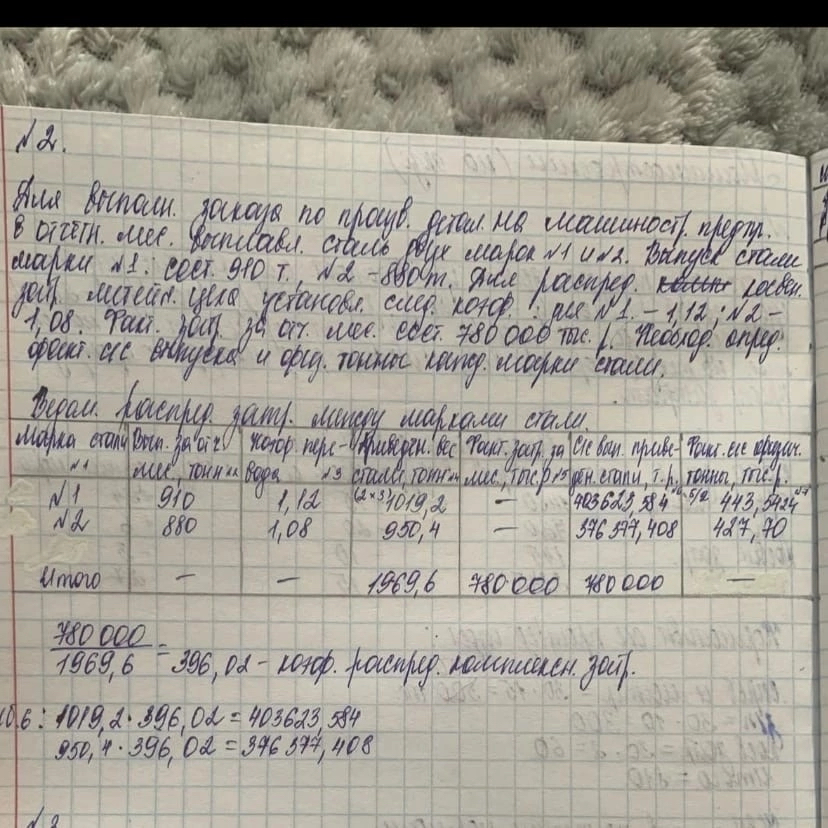 №2.
Для выполн. заказа по произв. детал. на машиностр. предпр.
в отчётн. мес. выплавл. сталь двух марок №1 и №2. Выпуск стали
марки №1. сост. 910 т., №2 - 880 т. Для распред. косвен.
затр. литейн. цеха установл. след. коэф.: для №1. - 1,12; №2 -
1,08. Факт. затр. за от. мес. сост. 780 000 тыс. р. Необход. опред.
факт. с/с выпуска и фед. тонны кажд. марки стали.
Ведом. распред. затр. между марками стали.
Марка стали №1 Вып. за отч. мес., тонн №2 Коэф. пере-вода №3 Приведен. вес стали, тонн №4 Факт. затр. за мес., тыс. р №5 С/с вып. приве-ден. стали, т.р. №6 Факт. с/с физич. тонны, тыс. р. №7
№1 910 1,12 (2×3) 1019,2 — 403623,584 6/2 443,5424
№2 880 1,08 950,4 — 376377,408 427,70
Итого — — 1969,6 780 000 780 000 —
780 000 / 1969,6 = 396,02 - коэф. распред. комплексн. затр.
6: 1019,2 · 396,02 = 403623,584
950,4 · 396,02 = 376377,408
№3